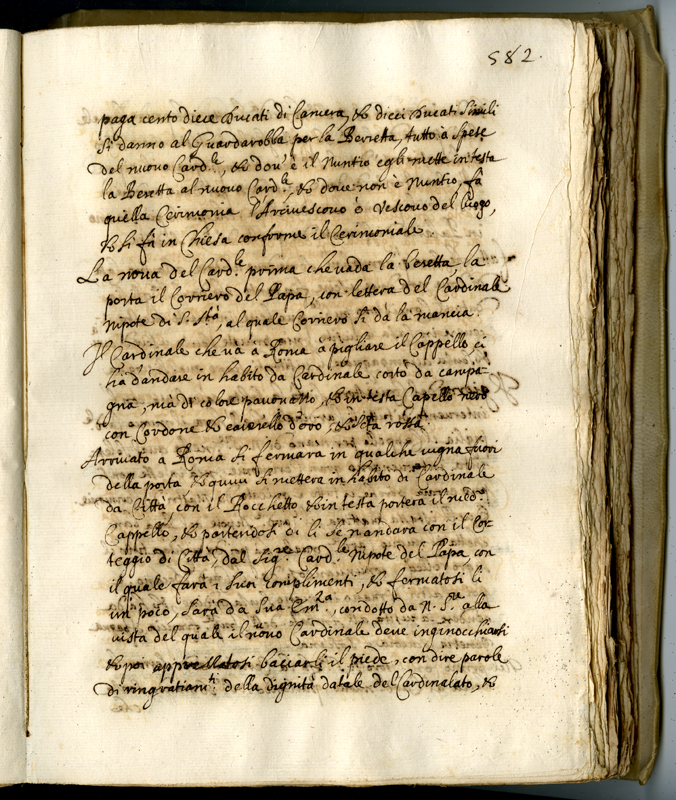 582.
paga cento diece Ducati di Camera, & dieci Ducati simili
si danno al Guardarobba per la Berretta, tutto a spese
del nuovo Card.le, & dov' è il Nuntio egli mette in testa
la Beretta al nuovo Card.le, & dove non è Nuntio, fa
quella Cerimonia l'Arcivescovo ò Vescovo del luogo,
& si fà in Chiesa conforme il Cerimoniale
La nova del Card.le prima che vada la beretta, la
porta il Corriero del Papa, con lettera del Cardinale
Nipote di S. Stà, al quale Corriero si da la mancia.
Il Cardinale che và a Roma à pigliare il Cappello, ci
ha d'andare in habito da Cardinale corto da campa-
gna, ma di colore pavonazzo, & in testa Capello nero
con Cordone & d'oro, & seta rossa
Arrivato a Roma si fermarà in qualche vigna fuori
della porta, & quivi si mettera in habito di Cardinale
da Città, con il Rocchetto & in testa porterà il med.o
Cappello, & partendosi di li se n'andara con il Cor-
teggio di Città, dal Sig.re Card.le Nipote del Papa, con
il quale farà i suoi complimenti, & fermatosi li
un poco, sarà da Sua Em.za, condotto da N. S.re alla
vista del quale il novo Cardinale deve inginocchiarsi
& poi appressatosi baciarli il piede, con dire parole
di ringratiam.ti della dignità datale del Cardinalato, &